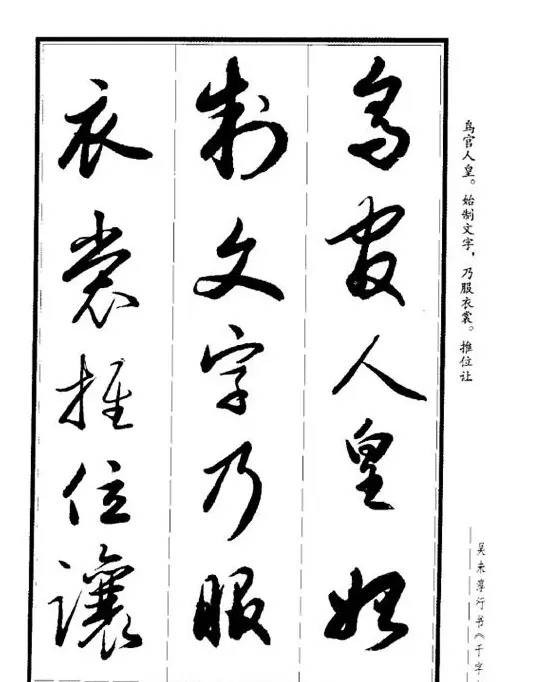 鸟官人皇。始制文字，乃服衣裳。推位让
鳥官人皇始
制文字乃服
衣裳推位讓
吴未淳行书《千字